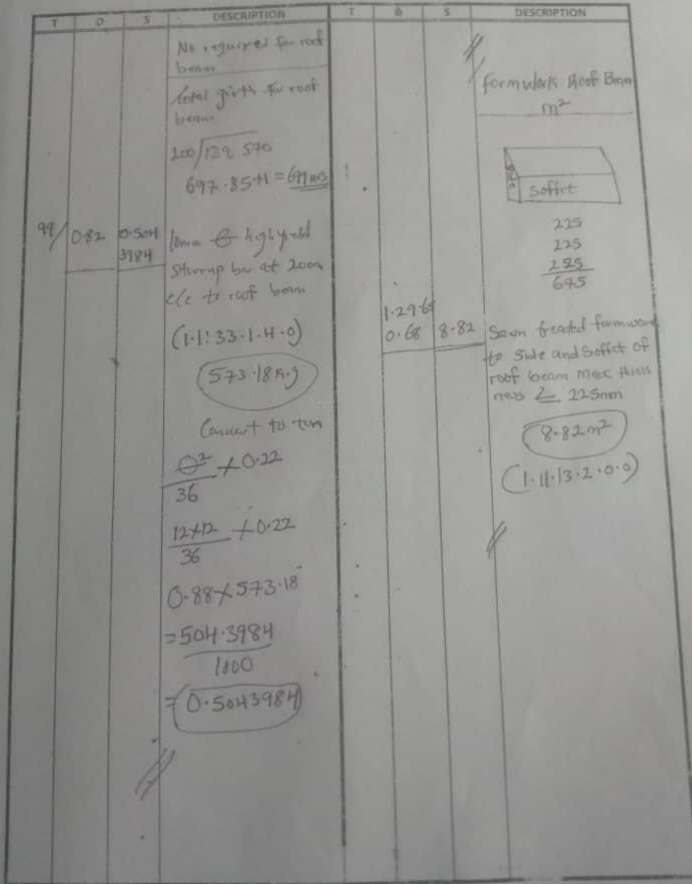 T D S DESCRIPTION
No required for roof
beam
Total girth for roof
beam
200/139, 570
697.85+1 = 699 nos
99/ 0.82 0.504
3984
high yield
stirrup bar at 200m
c/c to roof beam
(1.1:33.1.4.0)
573.18kg
Convert to tun
Θ² × 0.22
36
12×12 × 0.22
36
0.88 × 573.18
= 504.3984
1000
= 0.5043984
T D S DESCRIPTION
Formwork Roof Beam
m²
Soffit
225
225
225
675
0.68 8.82
Sawn treated formwork
to side and Soffit of
roof beam max thick
ness ≤ 225mm
8.82m²
(1.11.13.2.0.0)